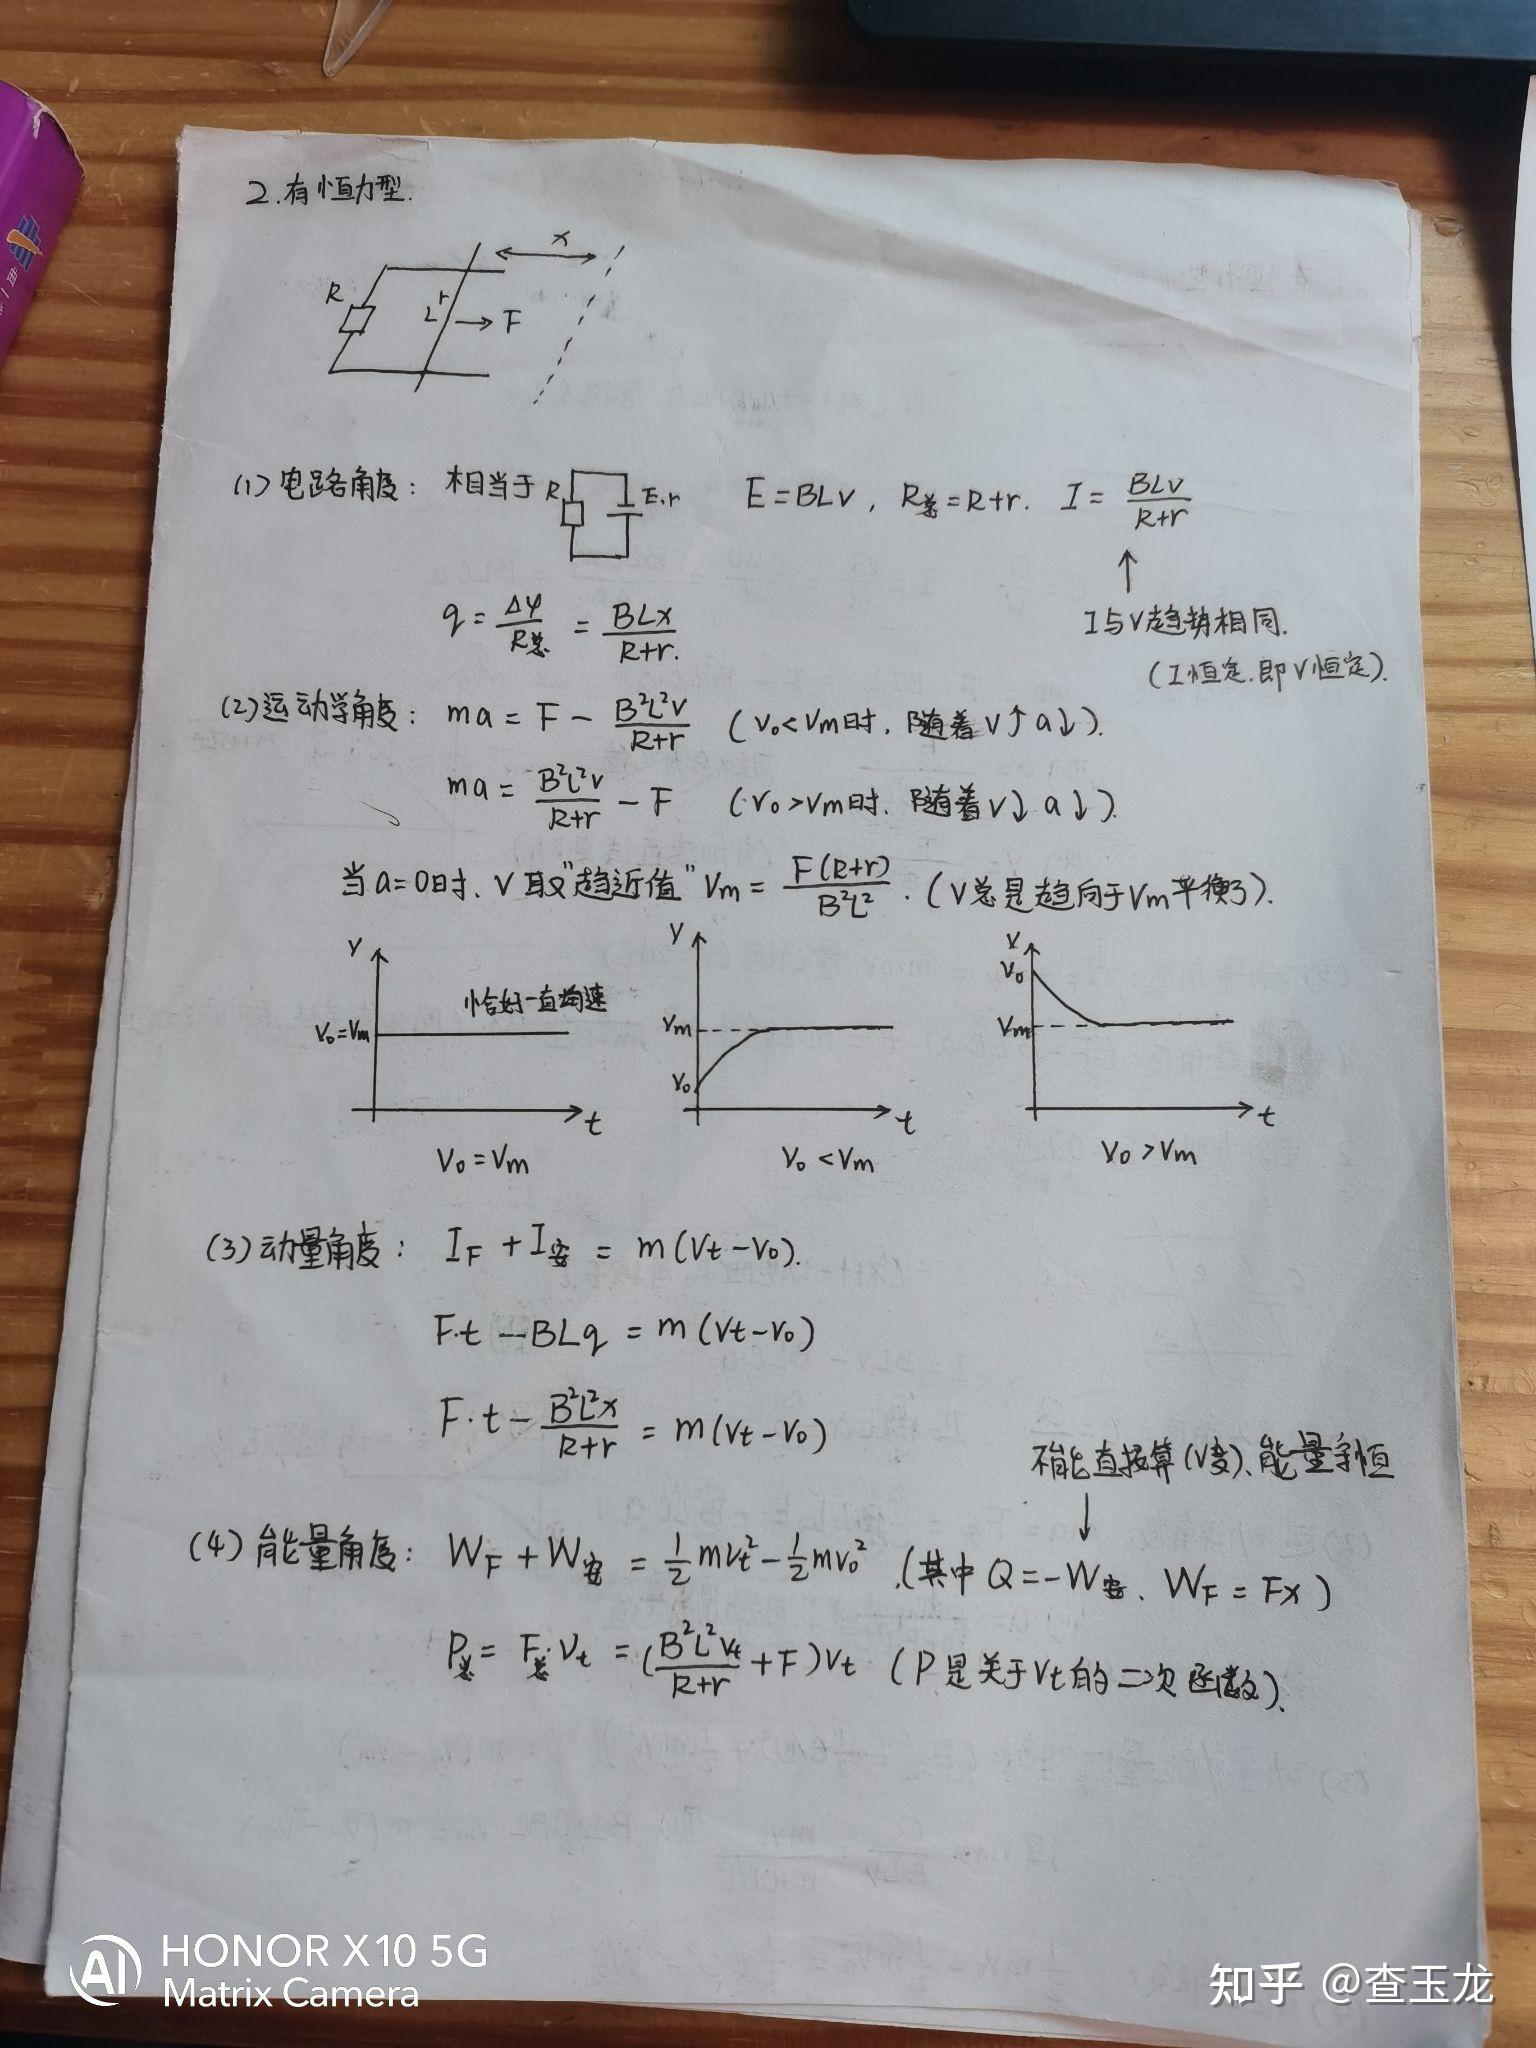 2.有恒力型.
x
R
r
L
F
(1)电路角度: 相当于 R E.r E=BLv, R总=R+r. I=BLv/(R+r)
↑
q=Δφ/R总=BLx/(R+r).
I与V趋势相同.
(I恒定.即V恒定).
(2)运动学角度: ma=F-B²L²v/(R+r) (v₀<vm时.随着v↑a↓).
ma=B²L²v/(R+r)-F (v₀>vm时.随着v↓a↓).
当a=0时.v取"趋近值"vm=F(R+r)/B²L².(v总是趋向于vm平衡了).
v v v
v₀
恰好一直匀速
v₀=vm vm vm
v₀
t t t
v₀=vm v₀<vm v₀>vm
(3)动量角度: I_F+I安=m(vt-v₀).
F·t-BLq=m(vt-v₀)
F·t-B²L²x/(R+r)=m(vt-v₀)
不能直接算(v变).能量守恒
↓
(4)能量角度: W_F+W安=½mvt²-½mv₀².(其中Q=-W安. W_F=Fx)
P总=F总·vt=(B²L²vt/(R+r)+F)vt (P是关于vt的二次函数).
AI
HONOR X10 5G
Matrix Camera
知乎 @查玉龙